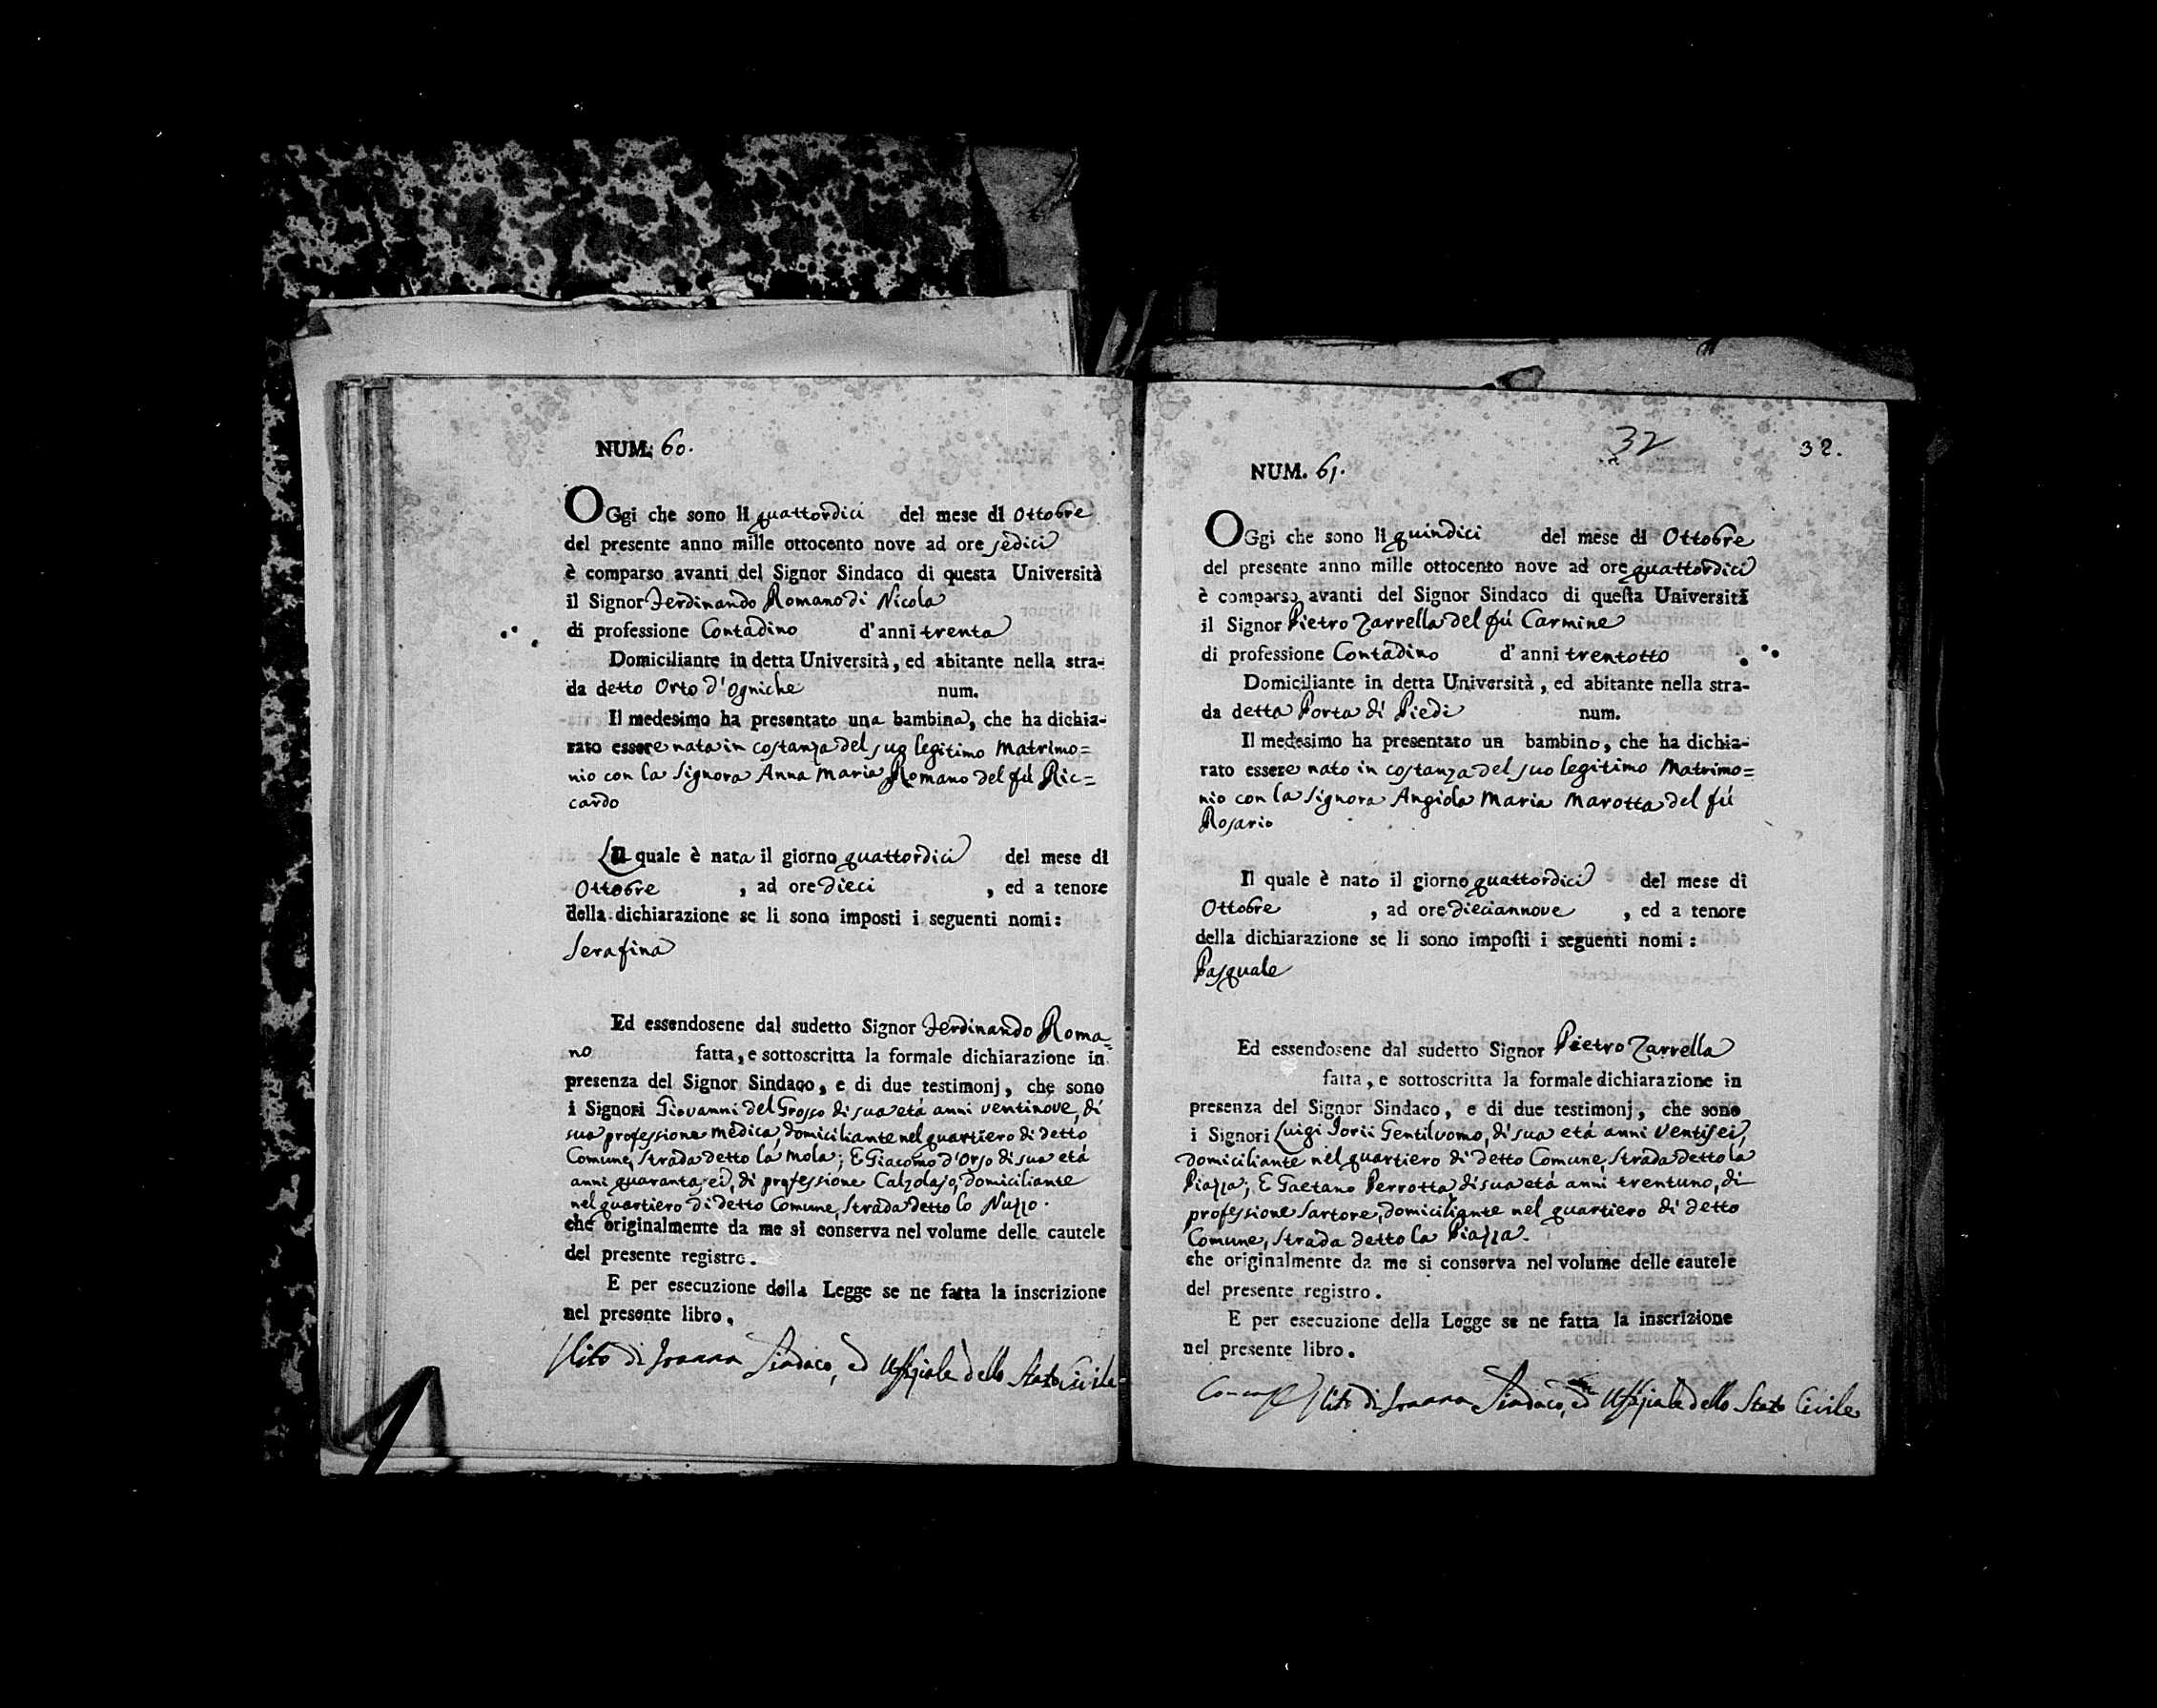 NUM. 60.
OGgi che sono li quattordici del mese di Ottobre
del presente anno mille ottocento nove ad ore sedici
è comparso avanti del Signor Sindaco di questa Università
il Signor Ferdinando Romano di Nicola
di professione Contadino d'anni trenta
Domiciliante in detta Università, ed abitante nella stra-
da detto Orto d'ogniche num.
Il medesimo ha presentato una bambina, che ha dichia-
rato essere nata in costanza del suo legitimo Matrimo=
nio con la Signora Anna Maria Romano del fú Ric=
cardo
La quale è nata il giorno quattordici del mese di
Ottobre , ad ore dieci , ed a tenore
della dichiarazione se li sono imposti i seguenti nomi:
Serafina
Ed essendosene dal sudetto Signor Ferdinando Roma=
no fatta, e sottoscritta la formale dichiarazione in
presenza del Signor Sindaco, e di due testimonj, che sono
i Signori Giovanni del Grosso di sua etá anni ventinove, di
sua professione medica, domiciliante nel quartiero di detto
Comune, Strada detto la Mola; E Giacomo d'Orso di sua etá
anni quarantasei, di professione Calzolajo, domiciliante
nel quartiero di detto Comune, Strada detto lo Nuzzo.
che originalmente da me si conserva nel volume delle cautele
del presente registro.
E per esecuzione della Legge se ne fatta la inscrizione
nel presente libro.
Vito di Sindaco, ed Uffiziale dello Stato Civile
32
32.
NUM. 61.
OGgi che sono li quindici del mese di Ottobre
del presente anno mille ottocento nove ad ore quattordici
è comparso avanti del Signor Sindaco di questa Università
il Signor Pietro Zarrella del fú Carmine
di professione Contadino d'anni trentotto
Domiciliante in detta Università, ed abitante nella stra-
da detta Porta di Piedi num.
Il medesimo ha presentato un bambino, che ha dichia-
rato essere nato in costanza del suo legitimo Matrimo=
nio con la Signora Angiola Maria Marotta del fú
Rosario
Il quale è nato il giorno quattordici del mese di
Ottobre , ad ore dieciannove , ed a tenore
della dichiarazione se li sono imposti i seguenti nomi:
Pasquale
Ed essendosene dal sudetto Signor Pietro Zarrella
fatta, e sottoscritta la formale dichiarazione in
presenza del Signor Sindaco, e di due testimonj, che sono
i Signori Luigi Iorii Gentiluomo, di sua etá anni ventisei,
domiciliante nel quartiero di detto Comune, Strada detto la
Piazza; E Gaetano Perrotta di sua etá anni trentuno, di
professione Sartore, domiciliante nel quartiero di detto
Comune, Strada detto la Piazza.
che originalmente da me si conserva nel volume delle cautele
del presente registro.
E per esecuzione della Legge se ne fatta la inscrizione
nel presente libro.
Vito di Sindaco, ed Uffiziale dello Stato Civile